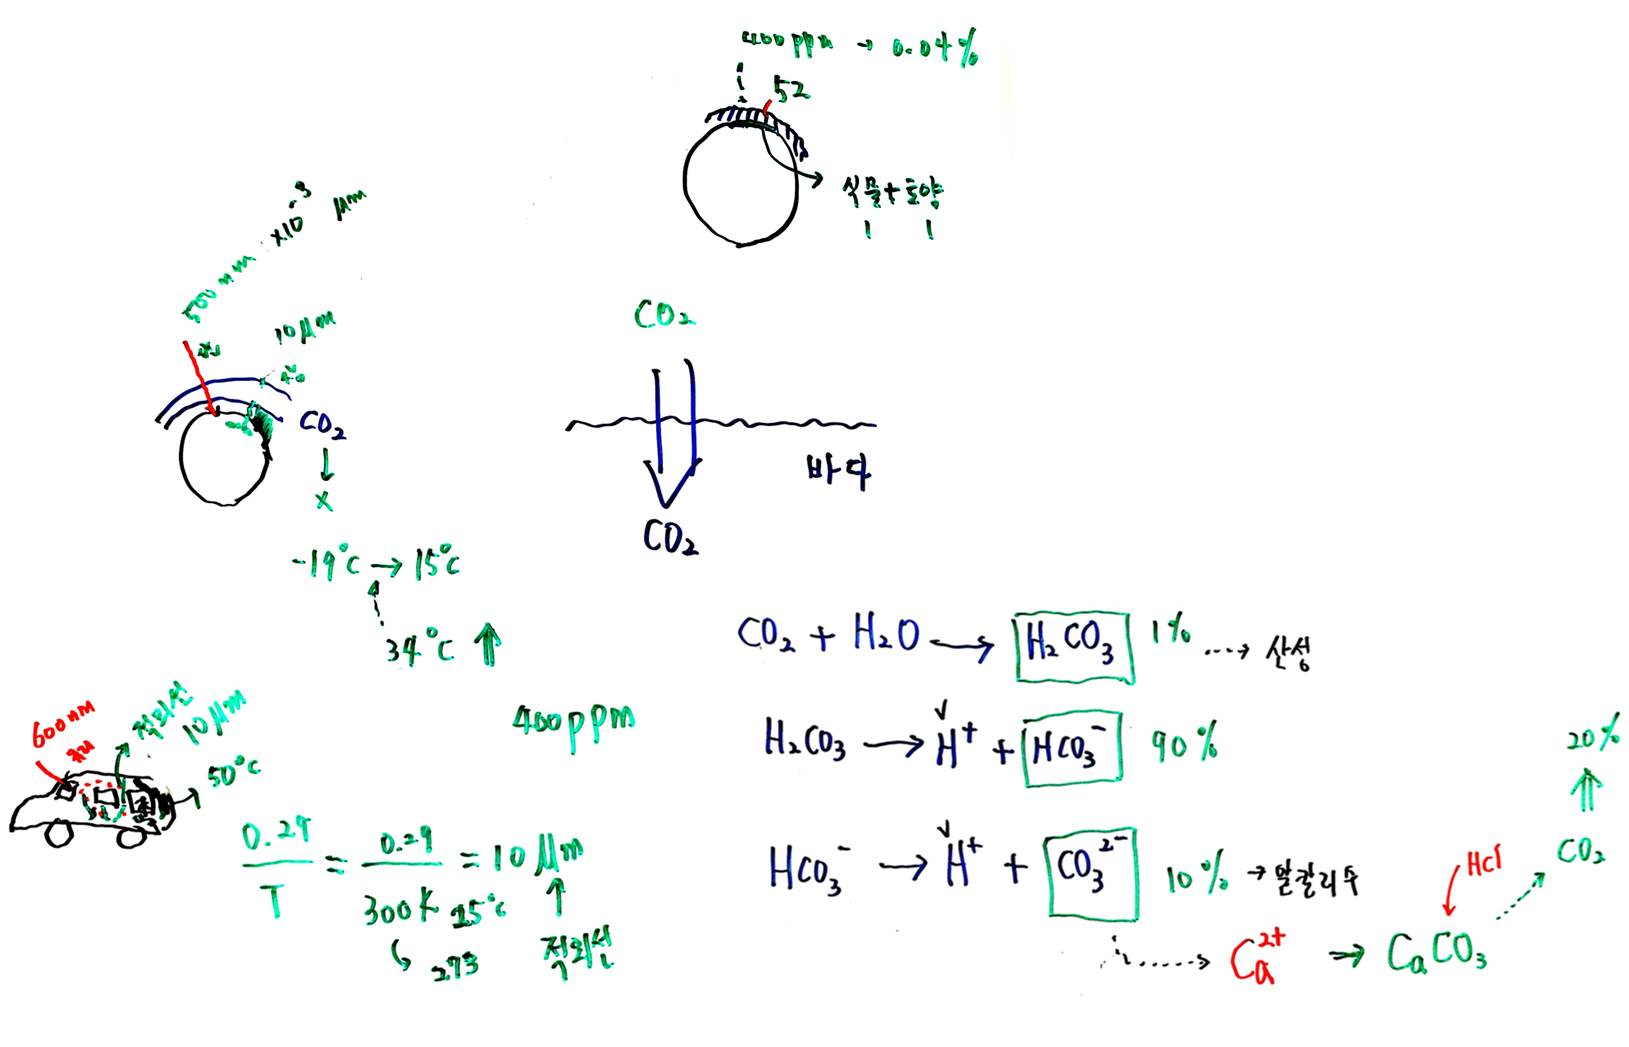 400ppm → 0.04%
52
식물+토양
500nm ×10⁻³ μm
10μm
CO₂
↓
x
-19°C → 15°C
34°C ⇑
CO₂
바다
CO₂
400ppm
600nm
적외선
10μm
50°C
0.29/T = 0.29/300K = 10μm
25°C
273
적외선
CO₂ + H₂O → H₂CO₃ 1% ⋯→ 산성
H₂CO₃ → H⁺ + HCO₃⁻ 90%
HCO₃⁻ → H⁺ + CO₃²⁻ 10% → 알칼리수
Ca²⁺ → CaCO₃
HCl
CO₂
20%